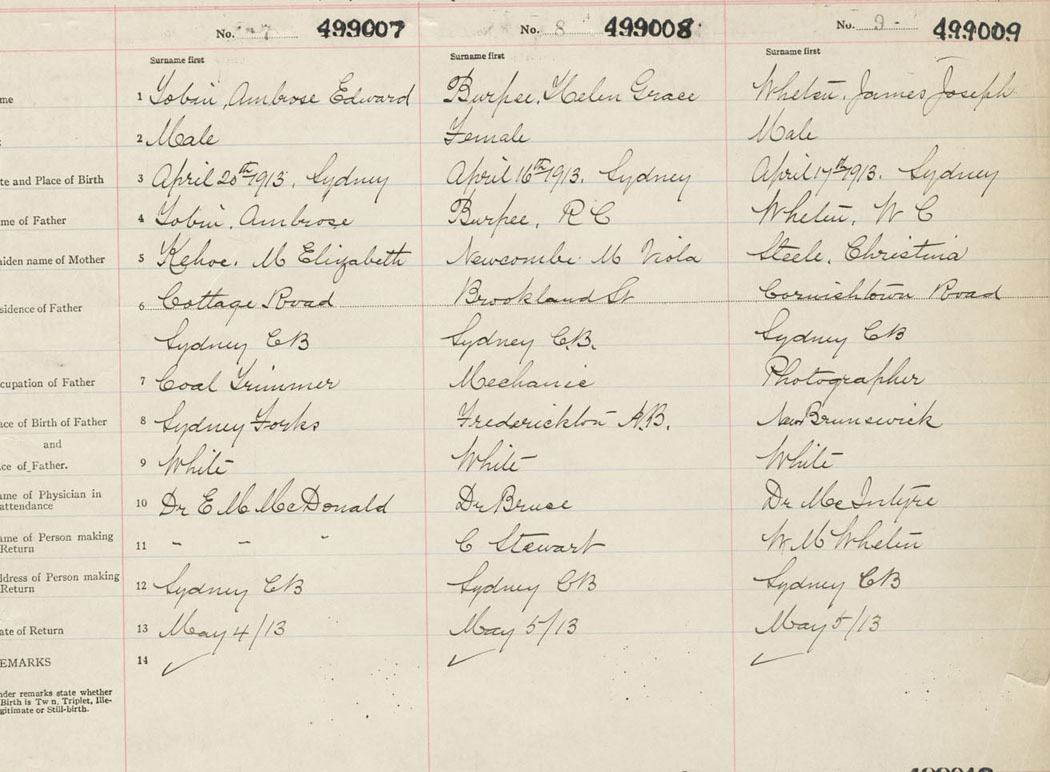 No. 7 499007 No. 8 499008 No. 9 499009
Surname first Surname first Surname first
me 1 Tobin, Ambrose Edward Burpee, Helen Grace Whelen, James Joseph
2 Male Female Male
te and Place of Birth 3 April 20th 1913, Sydney April 16th 1913. Sydney April 17th 1913. Sydney
me of Father 4 Tobin, Ambrose Burpee, R C Whelen, W C
iden name of Mother 5 Kehoe, M Elizabeth Newcombe M Viola Steele, Christina
sidence of Father 6 Cottage Road Brookland St Cornishtown Road
Sydney CB Sydney C.B. Sydney CB
cupation of Father 7 Coal Trimmer Mechanic Photographer
ace of Birth of Father 8 Sydney Forks Frederickton N.B. New Brunswick
and
ce of Father. 9 White White White
ame of Physician in
attendance 10 Dr E M McDonald Dr Bruce Dr McIntyre
ame of Person making
Return 11 - - - C Stewart W M Whelen
ddress of Person making
Return 12 Sydney CB Sydney CB Sydney CB
ate of Return 13 May 4/13 May 5/13 May 5/13
EMARKS 14 ✓ ✓ ✓
nder remarks state whether
Birth is Tw n, Triplet, Ille-
gitimate or Still-birth.